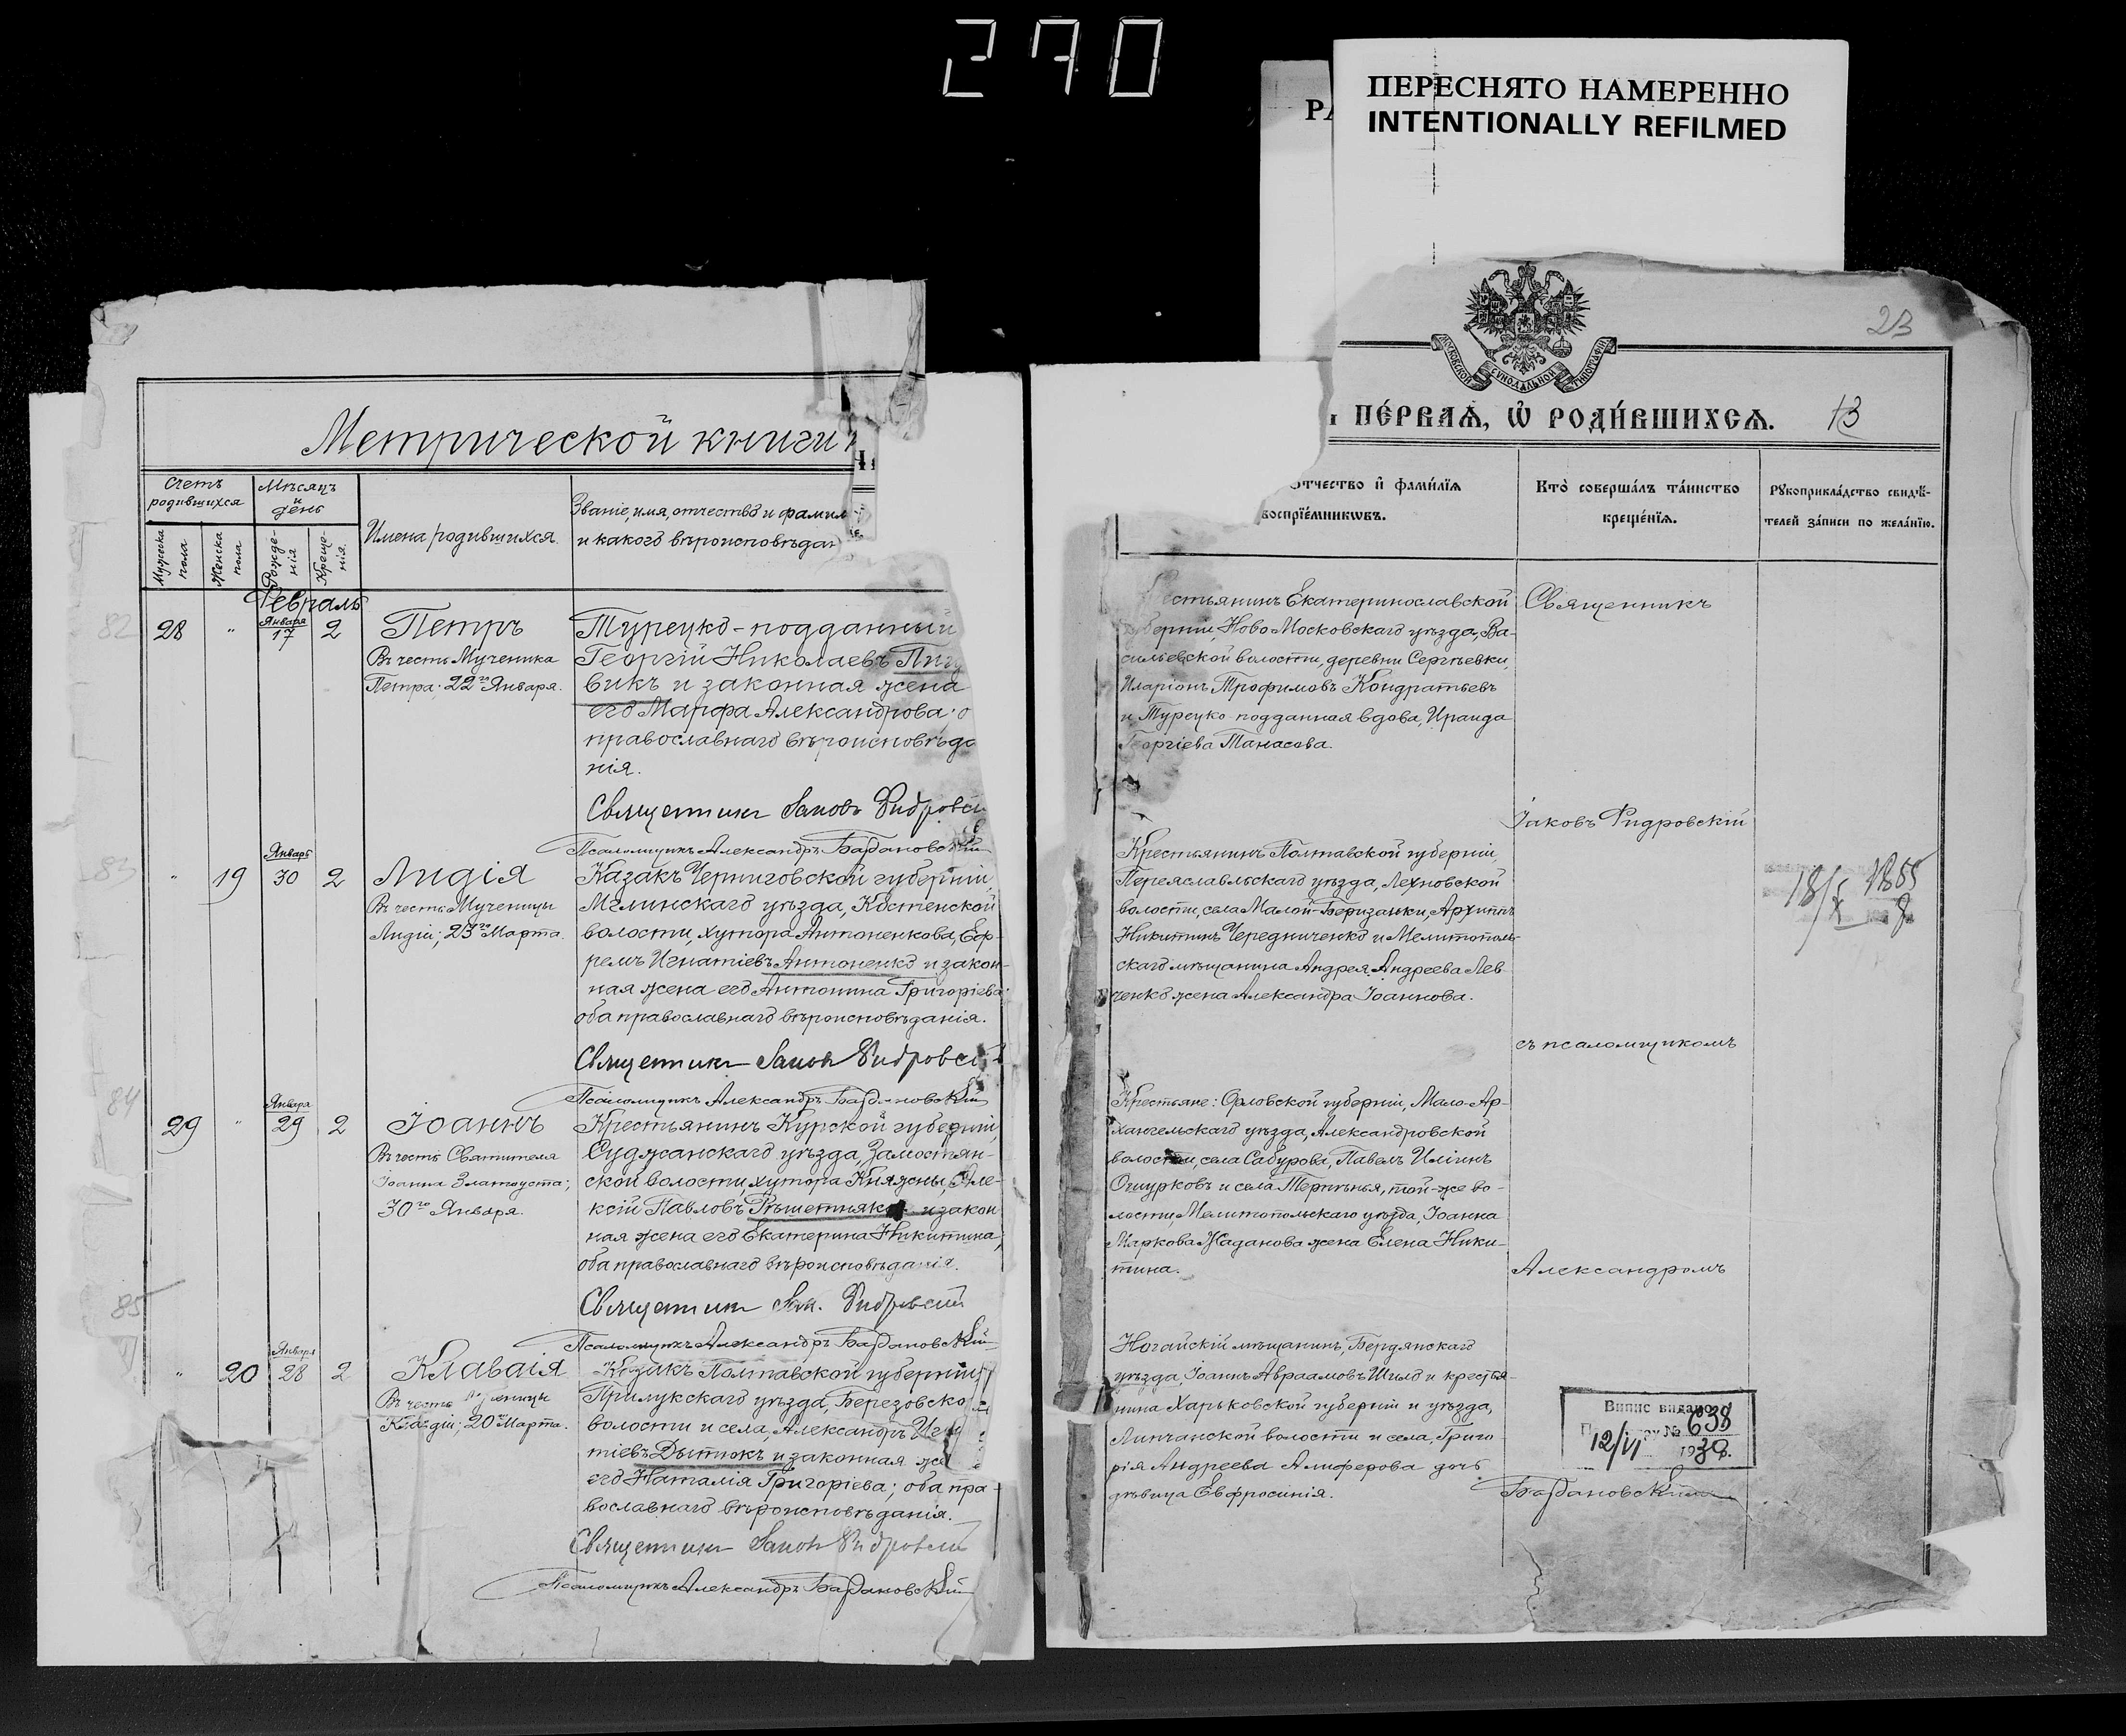 270
ПЕРЕСНЯТО НАМЕРЕННО
INTENTIONALLY REFILMED
РА
23
МОСКОВСКОЙ СѴНОДАЛЬНОЙ ТИПОГРАФІИ
Метрической книги
Счетъ родившихся
Мужеска пола
Женска пола
Мѣсяцъ и день
Рожденія
Крещенія.
Имена родившихся.
Званіе, имя, отчество и фамил
и какого вѣроисповѣдан
Февраль
82
28 " Января 17 2
Петръ
Въ честь Мученика
Петра; 22го Января.
Турецко-подданный
Георгій Николаевъ
викъ и законная жена
его Марфа Александрова; о
православнаго вѣроисповѣда
нія.
Священникъ Іаковъ Фидровск
Псаломщикъ Александръ Богдановскій
83
" 19 Январь 30 2
Лидія
Въ честь Мученицы
Лидіи; 23го Марта.
Казакъ Черниговской губерніи,
Мглинскаго уѣзда, Костенской
волости, хутора Антоненкова, Еф-
ремъ Игнатіевъ Антоненко и закон-
ная жена его Антонина Григоріева;
оба православнаго вѣроисповѣданія.
Священникъ Іаковъ Фидровскій
Псаломщикъ Александръ Богдановскій
84
29 " Января 29 2
Іоаннъ
Въ честь Святителя
Іоанна Златоуста;
30го Января.
Крестьянинъ Курской губерніи,
Суджанскаго уѣзда, Замостян-
ской волости хутора Княжны, Але-
ксій Павловъ Рѣшетняко и закон
ная жена его Екатерина Никитина;
оба православнаго вѣроисповѣданія.
Священникъ Іак. Фидровскій
Псаломщикъ Александръ Богдановскій
85
" 20 Января 28 2
Клавдія
Въ честь Мученицы
Клавдіи; 20го Марта.
Казакъ Полтавской губерніи,
Прилукскаго уѣзда, Березовско
волости и села, Александръ Игна
тіевъ Дытюкъ и законная же
его Наталія Григоріева; оба пра-
вославнаго вѣроисповѣданія.
Священникъ Іаковъ Фидровскій
Псаломщикъ Александръ Богдановскій
ПЕ́РВАѦ, Ѿ РОДИ́ВШИХСѦ. 13
ОТЧЕСТВО И ФАМИ́ЛІѦ
ВОСПРІЕ́МНИКѠВЪ.
КТО̀ СОВЕРША́ЛЪ ТА́ИНСТВО
КРЕЩЕ́НІѦ.
РꙊКОПРИКЛА́ДСТВО СВИДѢ́-
ТЕЛЕЙ ЗА́ПИСИ ПО ЖЕЛА́НІЮ.
естьянинъ Екатеринославской
берніи, НовоМосковскаго уѣзда, Ва-
сильевской волости, деревни Сергѣевки,
Иларіонъ Трофимовъ Кондратьевъ
и Турецко подданная вдова, Ираида
Георгіева Танасова.
Священникъ
Іаковъ Фидровскій
Крестьянинъ Полтавской губерніи,
Переяславльскаго уѣзда, Лехновской
волости, села Малой-Беризанки, Архиппъ
Никитинъ Чередниченко и Мелитополь-
скаго мѣщанина Андрея Андреева Лев
ченко жена Александра Іоаннова.
съ псаломщикомъ
Крестьяне: Орловской губерніи, Мало-Ар-
хангельскаго уѣзда, Александровской
волости, села Сабурова, Павелъ Иліинъ
Ошурковъ и села Терпѣнья, той-же во-
лости, Мелитопольскаго уѣзда, Іоанна
Маркова Жаданова жена Елена Ники-
тина.
Александромъ
Ногайскій мѣщанинъ, Бердянскаго
уѣзда, Іоаннъ Авраамовъ Шило и крестья-
нина Харьковской губерніи и уѣзда,
Липчанской волости и села, Григо-
рія Андреева Алиферова дочь
дѣвица Евфросинія.
Богдановскимъ
Випис видано
№ 638
12/VI 1930.